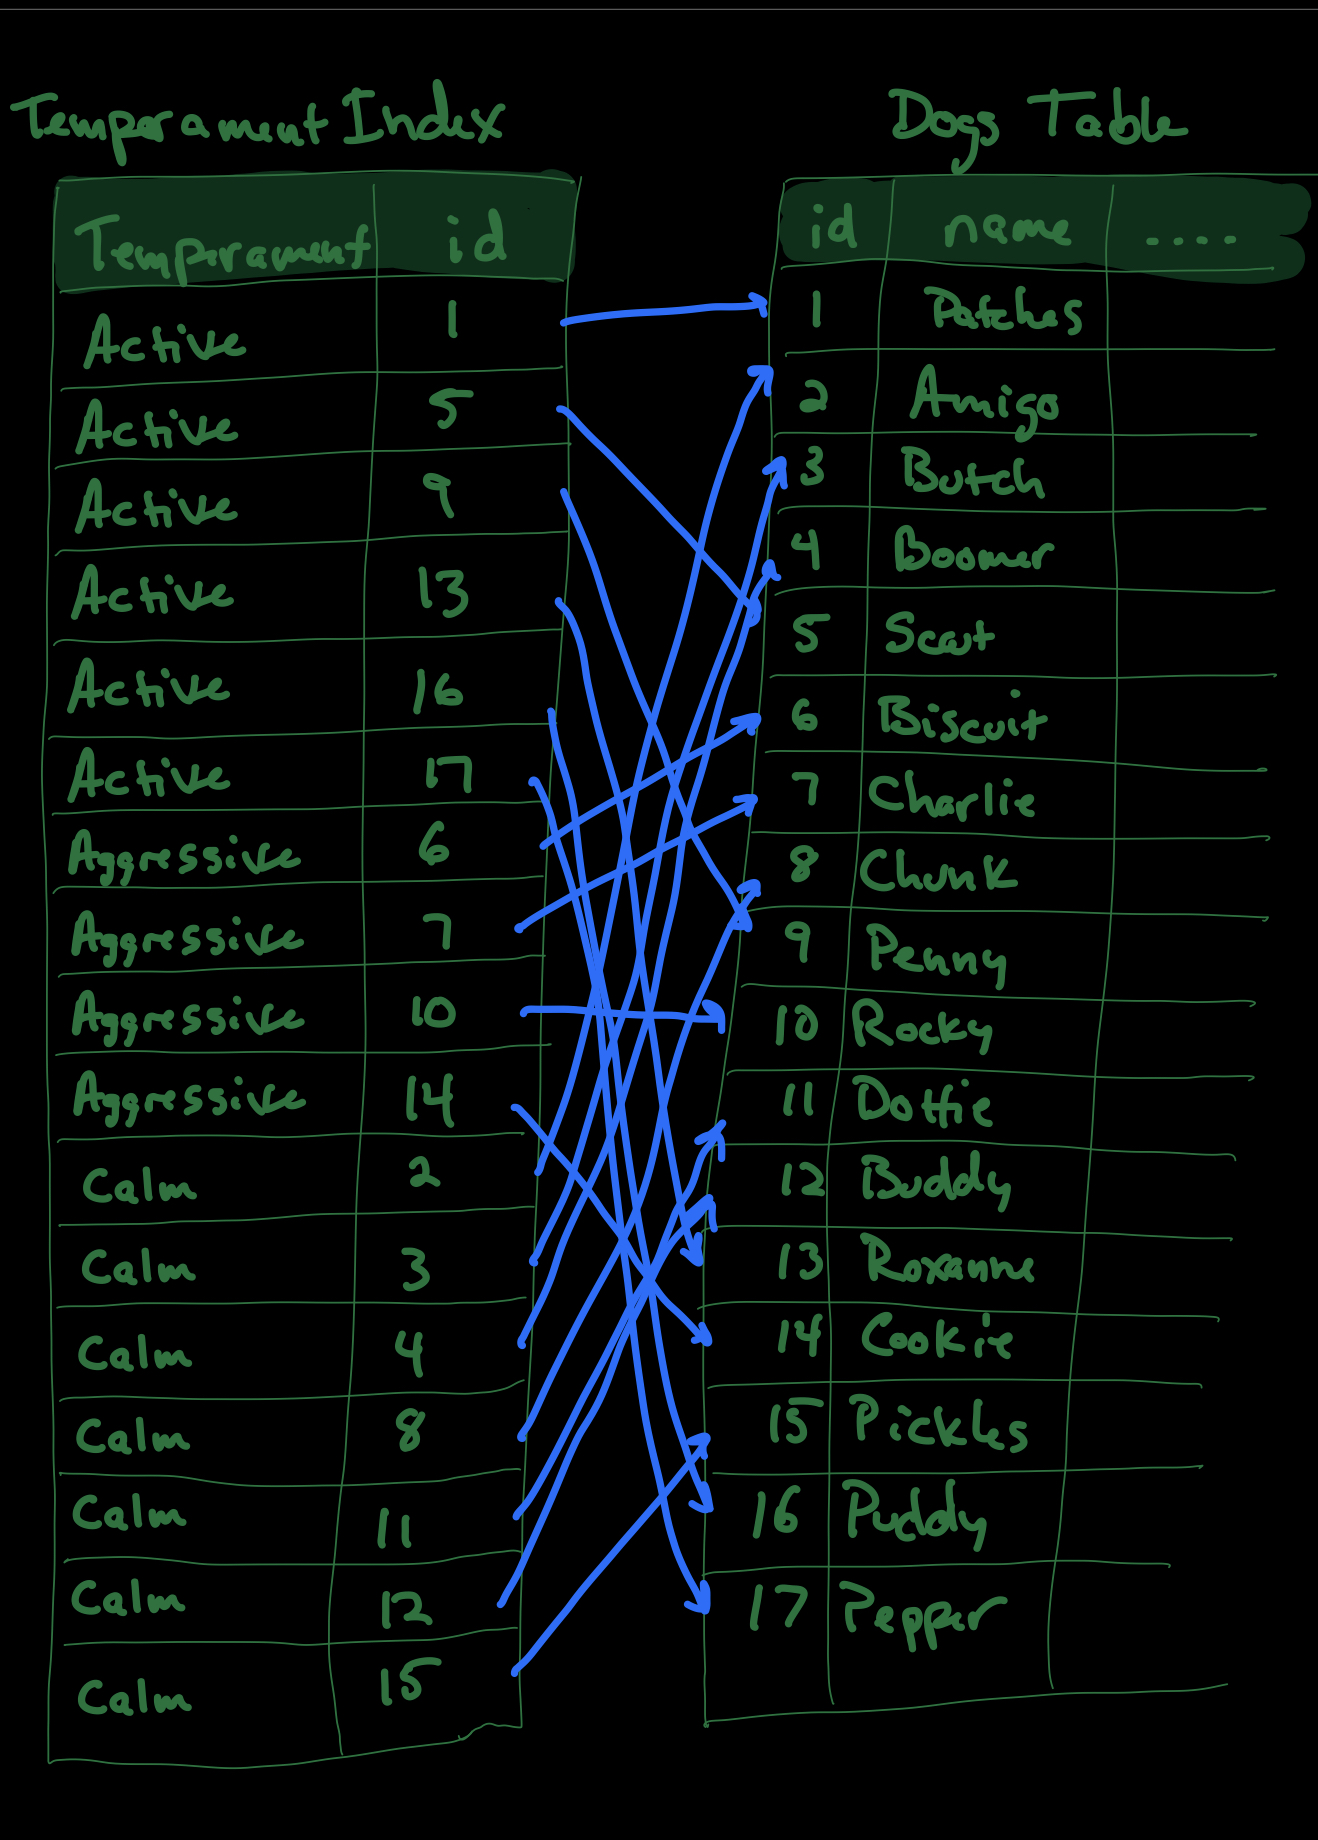 Temperament Index
Temperament id
Active 1
Active 5
Active 9
Active 13
Active 16
Active 17
Aggressive 6
Aggressive 7
Aggressive 10
Aggressive 14
Calm 2
Calm 3
Calm 4
Calm 8
Calm 11
Calm 12
Calm 15
Dogs Table
id name ....
1 Patches
2 Amigo
3 Butch
4 Boomer
5 Scout
6 Biscuit
7 Charlie
8 Chunk
9 Penny
10 Rocky
11 Dottie
12 Buddy
13 Roxanne
14 Cookie
15 Pickles
16 Puddy
17 Pepper